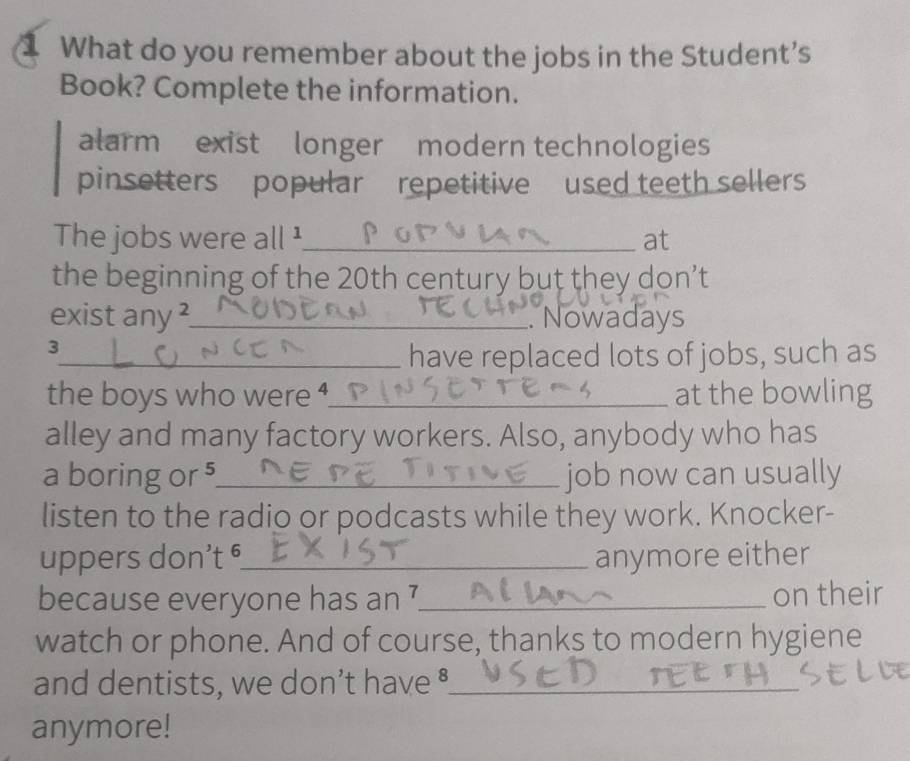 1 What do you remember about the jobs in the Student's
Book? Complete the information.
alarm exist longer modern technologies
pinsetters popular repetitive used teeth sellers
The jobs were all ¹ POPULAR at
the beginning of the 20th century but they don't
exist any ² MODERN TECHNOLOGIES. Nowadays
³ LONGER have replaced lots of jobs, such as
the boys who were ⁴ PINSETTERS at the bowling
alley and many factory workers. Also, anybody who has
a boring or ⁵ REPETITIVE job now can usually
listen to the radio or podcasts while they work. Knocker-
uppers don't ⁶ EXIST anymore either
because everyone has an ⁷ ALARM on their
watch or phone. And of course, thanks to modern hygiene
and dentists, we don't have ⁸ USED TEETH SELLE
anymore!